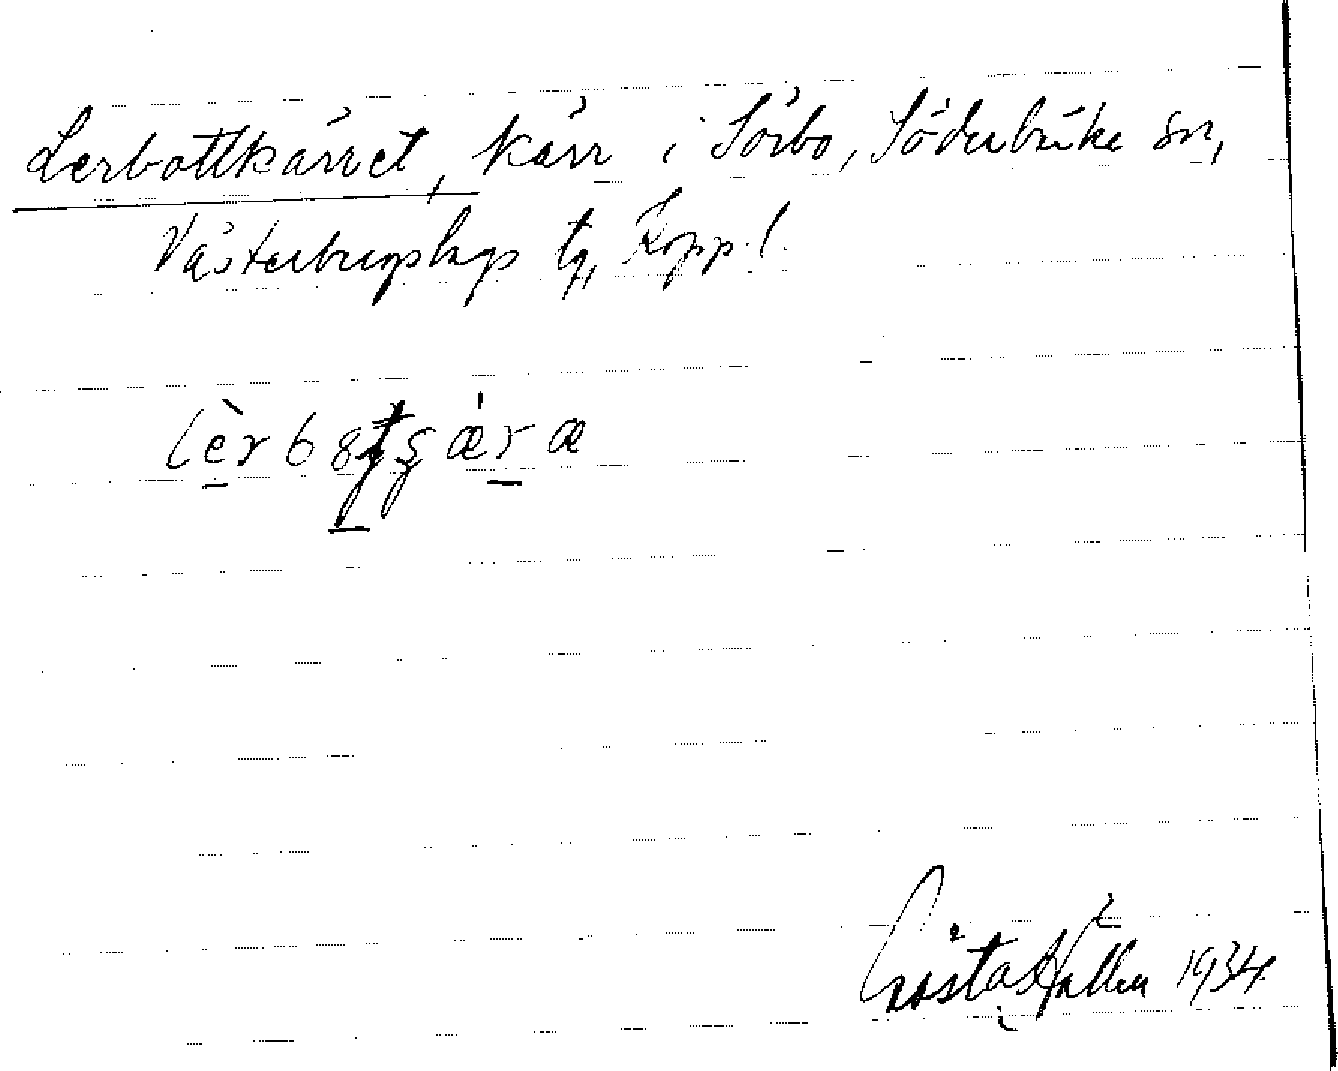 Lerbottkärret, kärr i Sörbo, Söderbärke sn,
Västerbergslags tg, Kopp. l.
lèrb8tsæ̀ræ
Gösta Hallén 1934